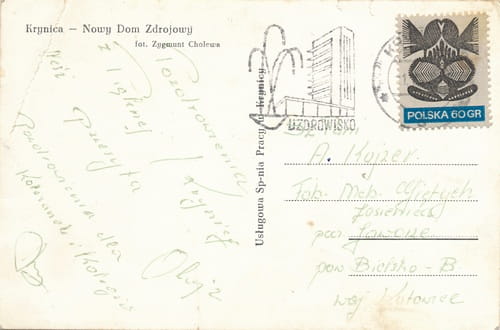 Krynica — Nowy Dom Zdrojowy
fot. Zygmunt Cholewa
Usługowa Sp-nia Pracy w Krynicy
UZDROWISKO
POLSKA 60 GR
Pozdrowienia
z Pięknej Krynicy
Przesyła
Olga
Pozdrowienia dla
A. Kojzer
Fab. Meb. Giętych
Jasienica
pow. Bielsko-B
woj Katowice